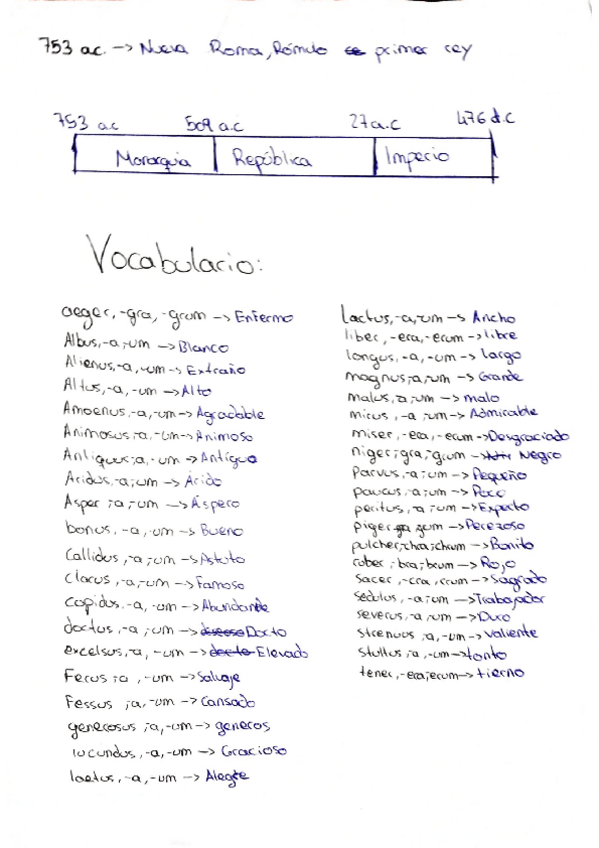 753 a.c. -> Nueva Roma, Rómulo primer rey
753 a.c 509 a.c 27 a.c 476 d.c
Monarquia República Imperio
Vocabulario:
aeger, -gra, -grum -> Enfermo
Albus, -a, -um -> Blanco
Alienus, -a, -um -> Extraño
Altus, -a, -um -> Alto
Amoenus, -a, -um -> Agradable
Animosus, -a, -um -> Animoso
Antiquus, -a, -um -> Antiguo
Acidus, -a, -um -> Ácido
Asper, -a, -um -> Áspero
bonus, -a, -um -> Bueno
Callidus, -a, -um -> Astuto
Clarus, -a, -um -> Famoso
Copidus, -a, -um -> Abundande
doctus, -a, -um -> Docto
excelsus, -a, -um -> Elevado
Ferus, -a, -um -> Salvaje
Fessus, -a, -um -> Cansado
generosus, -a, -um -> generos
iucundus, -a, -um -> Gracioso
laetus, -a, -um -> Alegre
lactus, -a, -um -> Ancho
liber, -era, -erum -> libre
longus, -a, -um -> largo
magnus, -a, -um -> Grande
malus, -a, -um -> malo
mirus, -a, -um -> Admirable
miser, -era, -erum -> Desgraciado
niger, -gra, -grum -> Negro
Parvus, -a, -um -> Pequeño
paucus, -a, -um -> Poco
peritus, -a, -um -> Experto
piger gra grum -> Perezoso
pulcher, -chra, -chrum -> Bonito
ruber, -bra, -brum -> Rojo
Sacer, -cra, -crum -> Sagrado
Sedulus, -a, -um -> Trabajador
severus, -a, -um -> Duro
strenuus, -a, -um -> Valiente
stultus, -a, -um -> tonto
tener, -era, -erum -> tierno